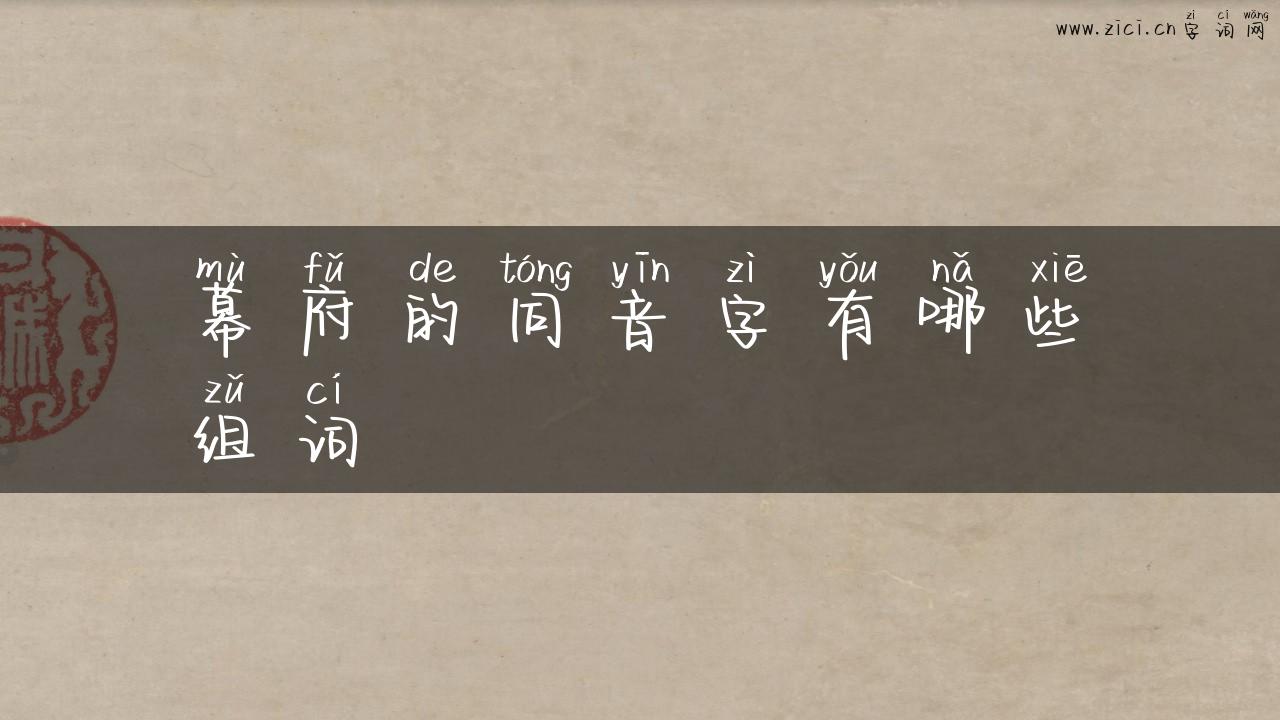 zì cí wǎng
www.zici.cn 字词网
mù fǔ de tóng yīn zì yǒu nǎ xiē
幕府的同音字有哪些
zǔ cí
组词